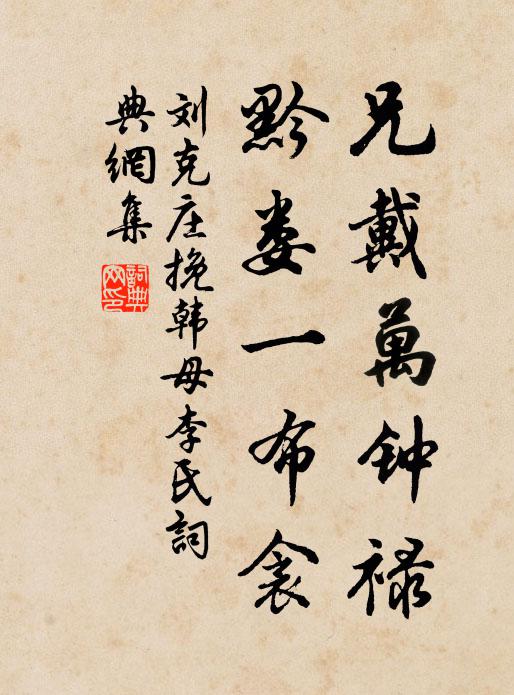 兄戴萬钟禄
黔娄一布衾
刘克庄挽韩母李氏詞
典網集
詞典网印